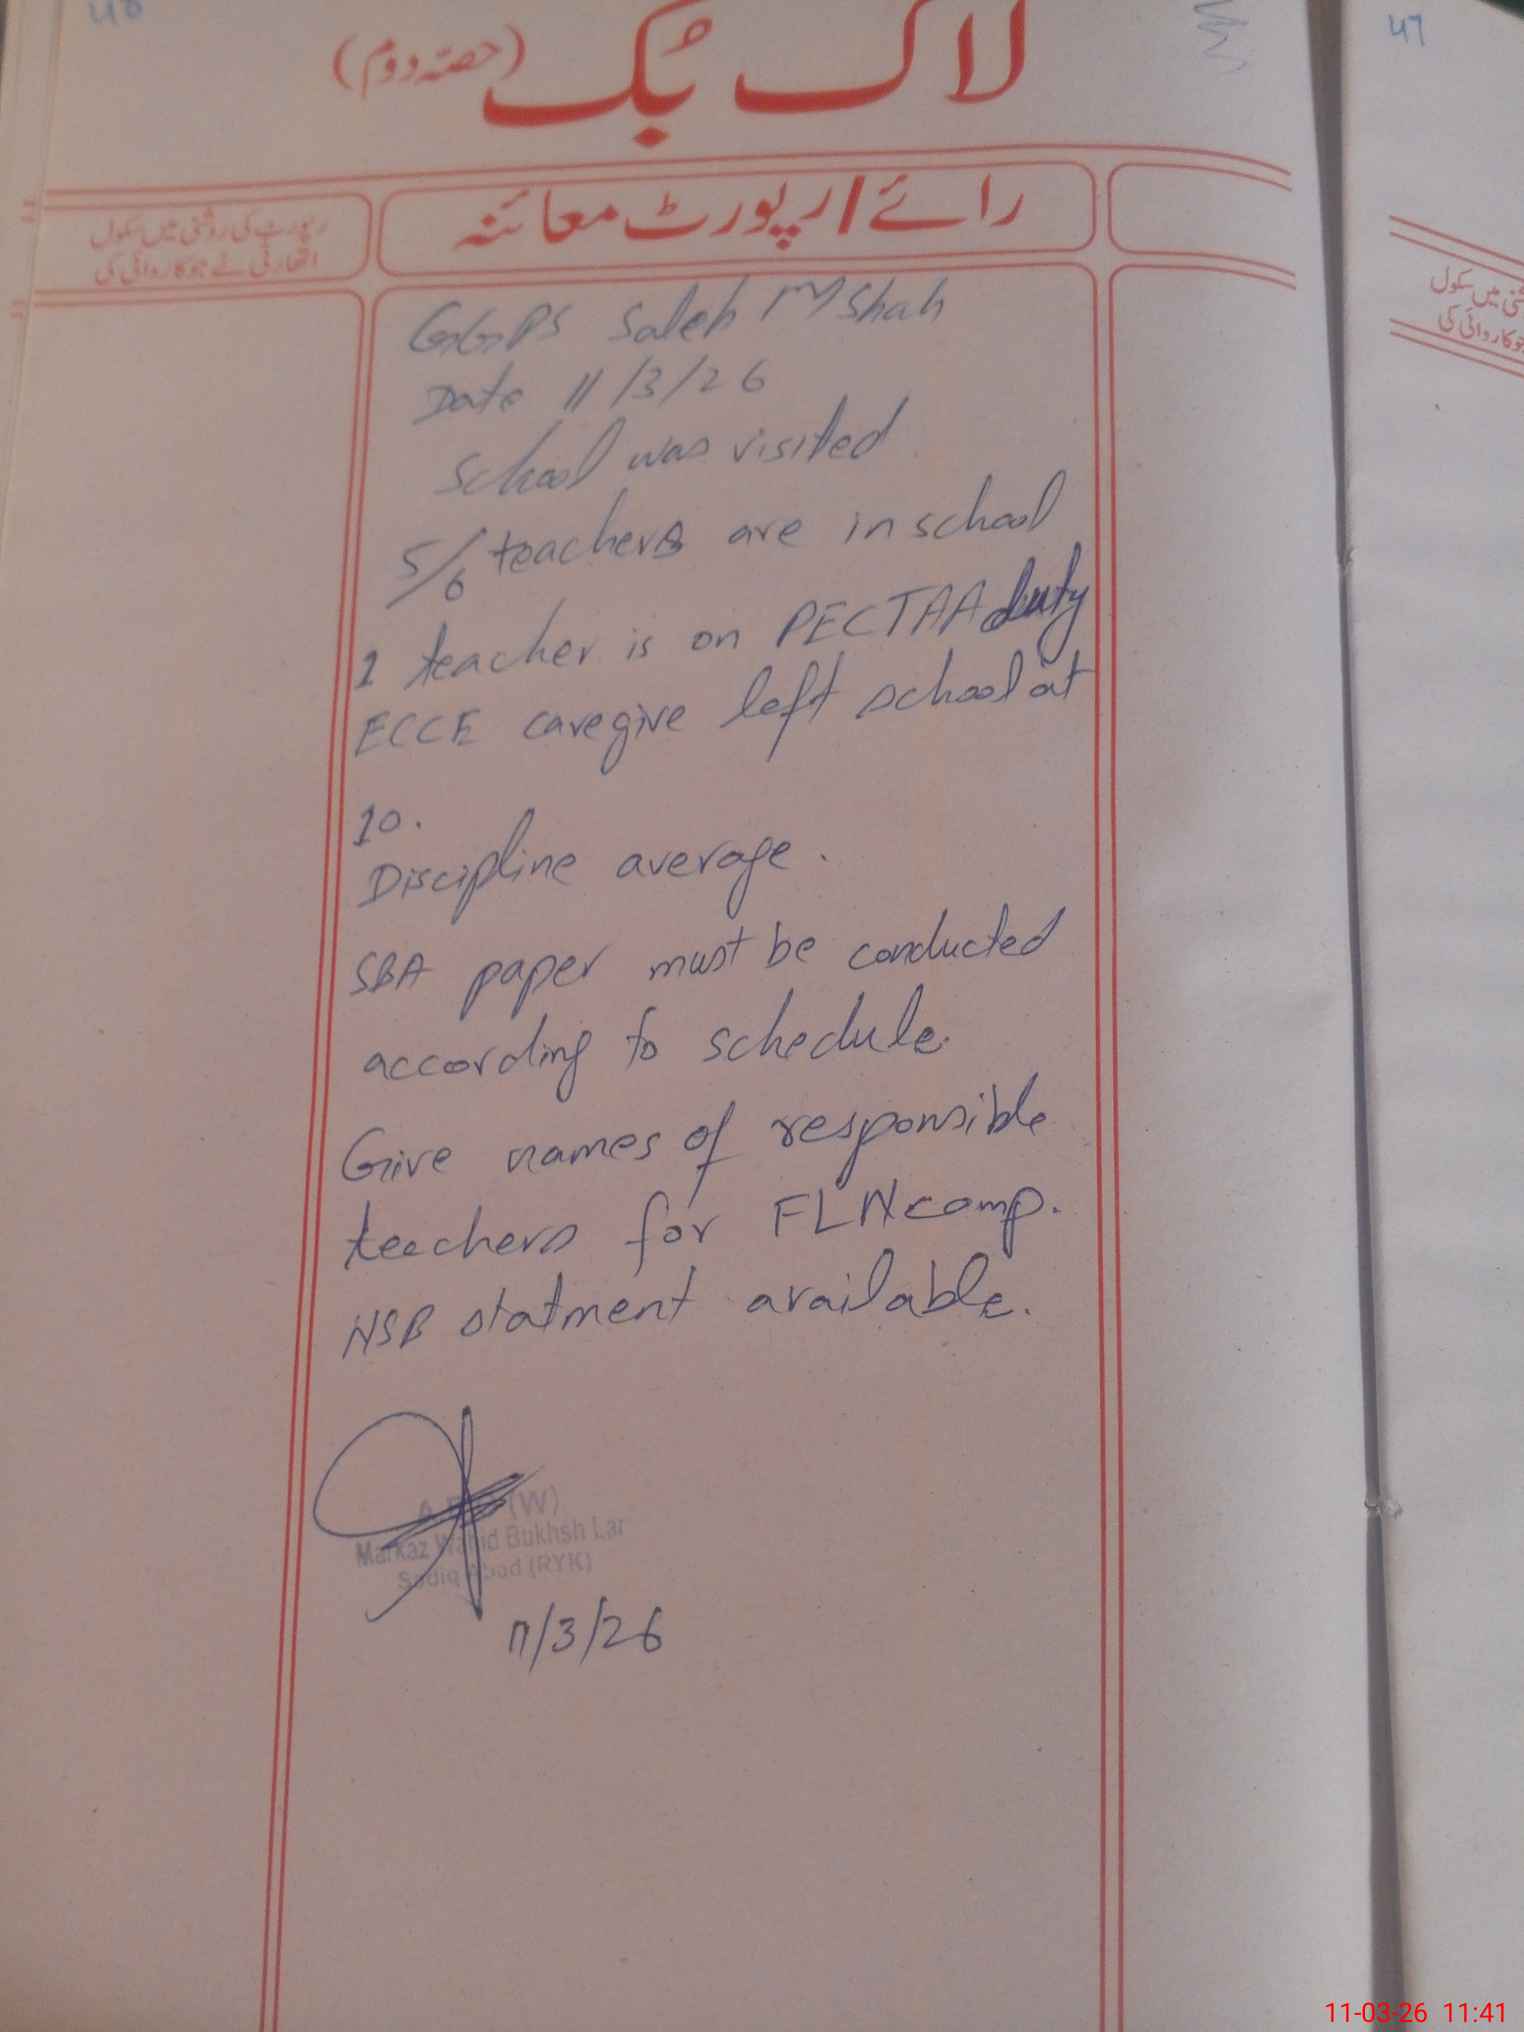 47
لاگ بک (حصہ دوم)
رائے/رپورٹ معائنہ
رپورٹ کی روشنی میں سکول
اتھارٹی نے جو کاروائی کی
GGPS Saleh M Shah
Date 11/3/26
School was visited
5/6 teachers are in school
1 teacher is on PECTAA duty
ECCE caregive left school at
10.
Discipline average.
SBA paper must be conducted
according to schedule.
Give names of responsible
teachers for FLN comp.
NSB statment available.
(W)
Markaz Wahid Bukhsh Lar
Sadiq Abad (RYK)
11/3/26
میں سکول
جو کاروائی کی
11-03-26 11:41